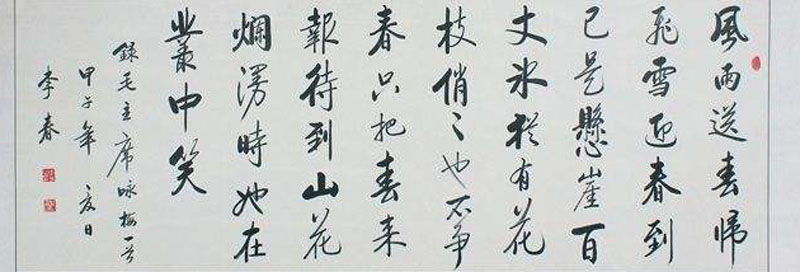 風雨送春歸
飛雪迎春到
已是懸崖百
丈冰猶有花
枝俏〻也不争
春只把春来
報待到山花
爛漫時她在
叢中笑
録毛主席咏梅一首
甲子年 夏日
李春